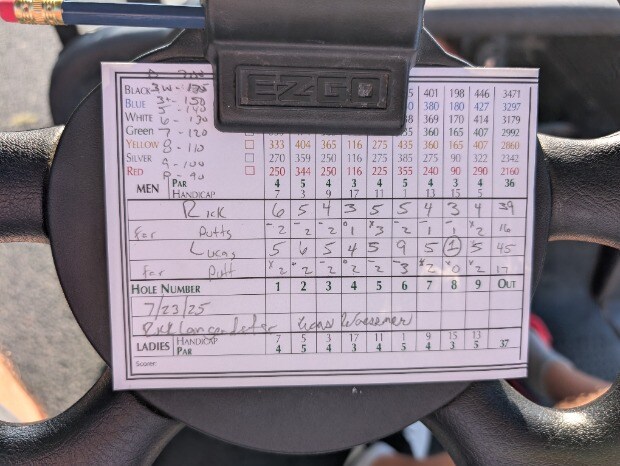 EZGO
BLACK 3W - 175 5 401 198 446 3471
BLUE 3 - 150 0 380 180 427 3297
WHITE 5 - 140 8 369 170 414 3179
6 - 130
GREEN 7 - 120 5 360 165 407 2992
YELLOW 8 - 110 333 404 365 116 275 435 260 165 407 2860
SILVER 9 - 100 270 359 250 116 275 385 275 90 322 2342
RED P - 90 250 344 250 116 225 355 240 90 290 2160
MEN PAR 4 5 4 3 4 5 4 3 4 36
HANDICAP 7 3 9 17 11 1 13 15 5
Rick 6 5 4 3 5 5 4 3 4 39
For Putts 2 2 2 1 3 2 1 1 2 16
Lucas 5 6 5 4 5 9 5 1 5 45
for Putt 2 2 2 2 2 3 2 0 2 17
HOLE NUMBER 1 2 3 4 5 6 7 8 9 OUT
7/23/25
Lucas
LADIES HANDICAP 7 5 3 17 11 1 9 15 13
PAR 4 5 4 3 4 5 4 3 5 37
Scorer: